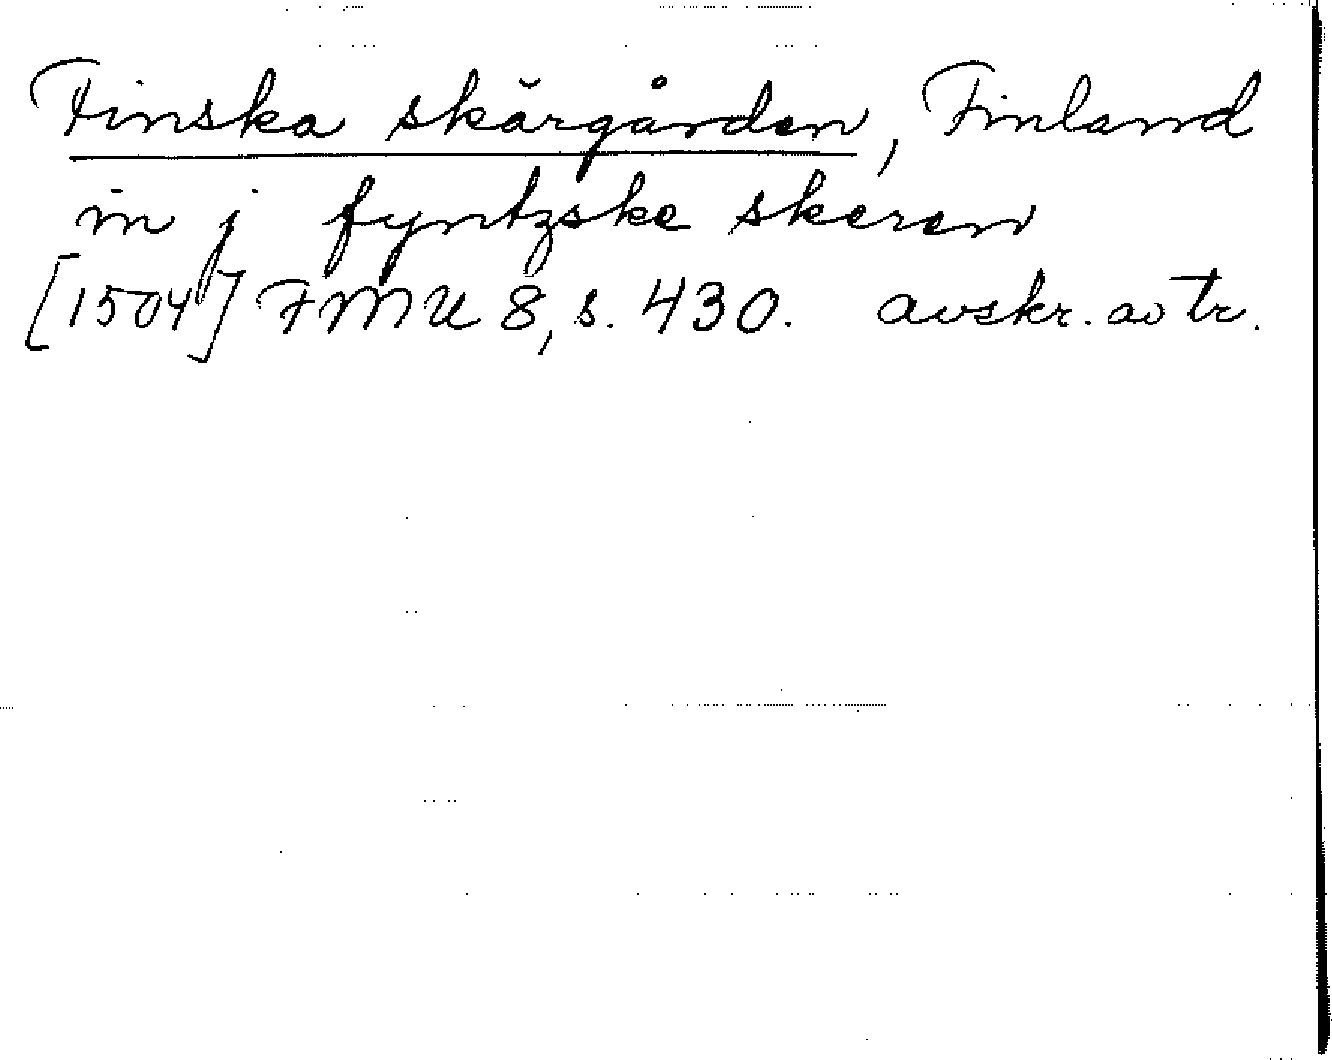 Finska skärgården, Finland
in j fyntzske skeren
[1504] FMU 8, s. 430. avskr. av tr.